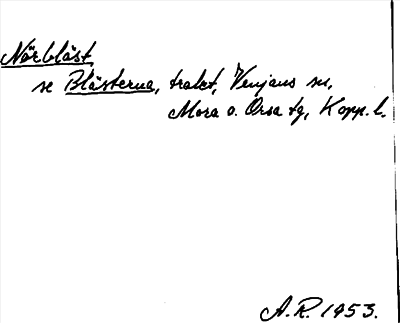 Nörbläst,
se Blästerna, trakt, Venjans sn,
Mora o. Orsa tg, Kopp. l.
A.R. 1953.